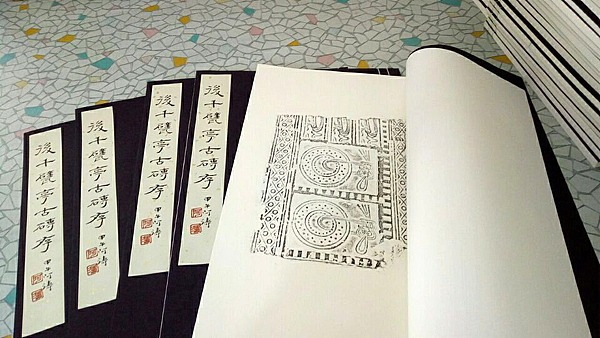 後千甓亭古磚存
甲午
後千甓亭古磚存
甲午
後千甓亭古磚存
甲午
後千甓亭古磚存
甲午